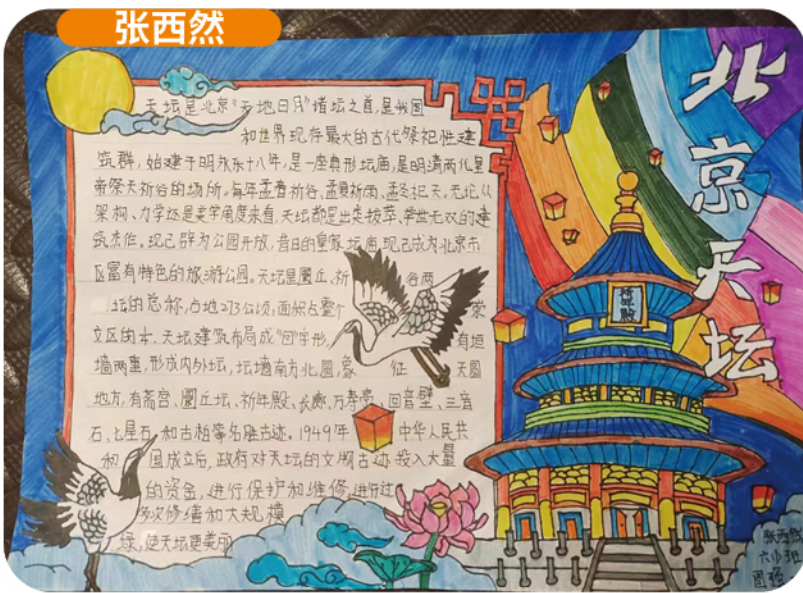 张西然
北京天坛
天坛是北京“天地日月”诸坛之首,是我国
和世界现存最大的古代祭祀性建
筑群,始建于明永乐十八年,是一座典形坛庙,是明清两代皇
帝祭天祈谷的场所。每年孟春祈谷、孟夏祈雨、孟冬祀天,无论从
架构、力学还是美学角度来看,天坛都是出类拔萃、举世无双的建
筑杰作。现已辟为公园开放,昔日的皇家坛庙现已成为北京市
区富有特色的旅游公园。天坛是圜丘、祈 谷两
坛的总称,占地273公顷,面积占整个 崇
文区的 天坛建筑布局成“回”字形, 有垣
墙两重,形成内外坛,坛墙南方北圆,象 征 天圆
地方,有斋宫、圜丘坛、祈年殿、长廊、万寿亭、回音壁、三音
石、七星石和古柏等名胜古迹。1949年 中华人民共
和 国成立后,政府对天坛的文明古迹投入大量
的资金,进行保护和维修,进行过
多次修缮和大规模
绿,使天坛更美丽
祈年殿
张西然
六小班